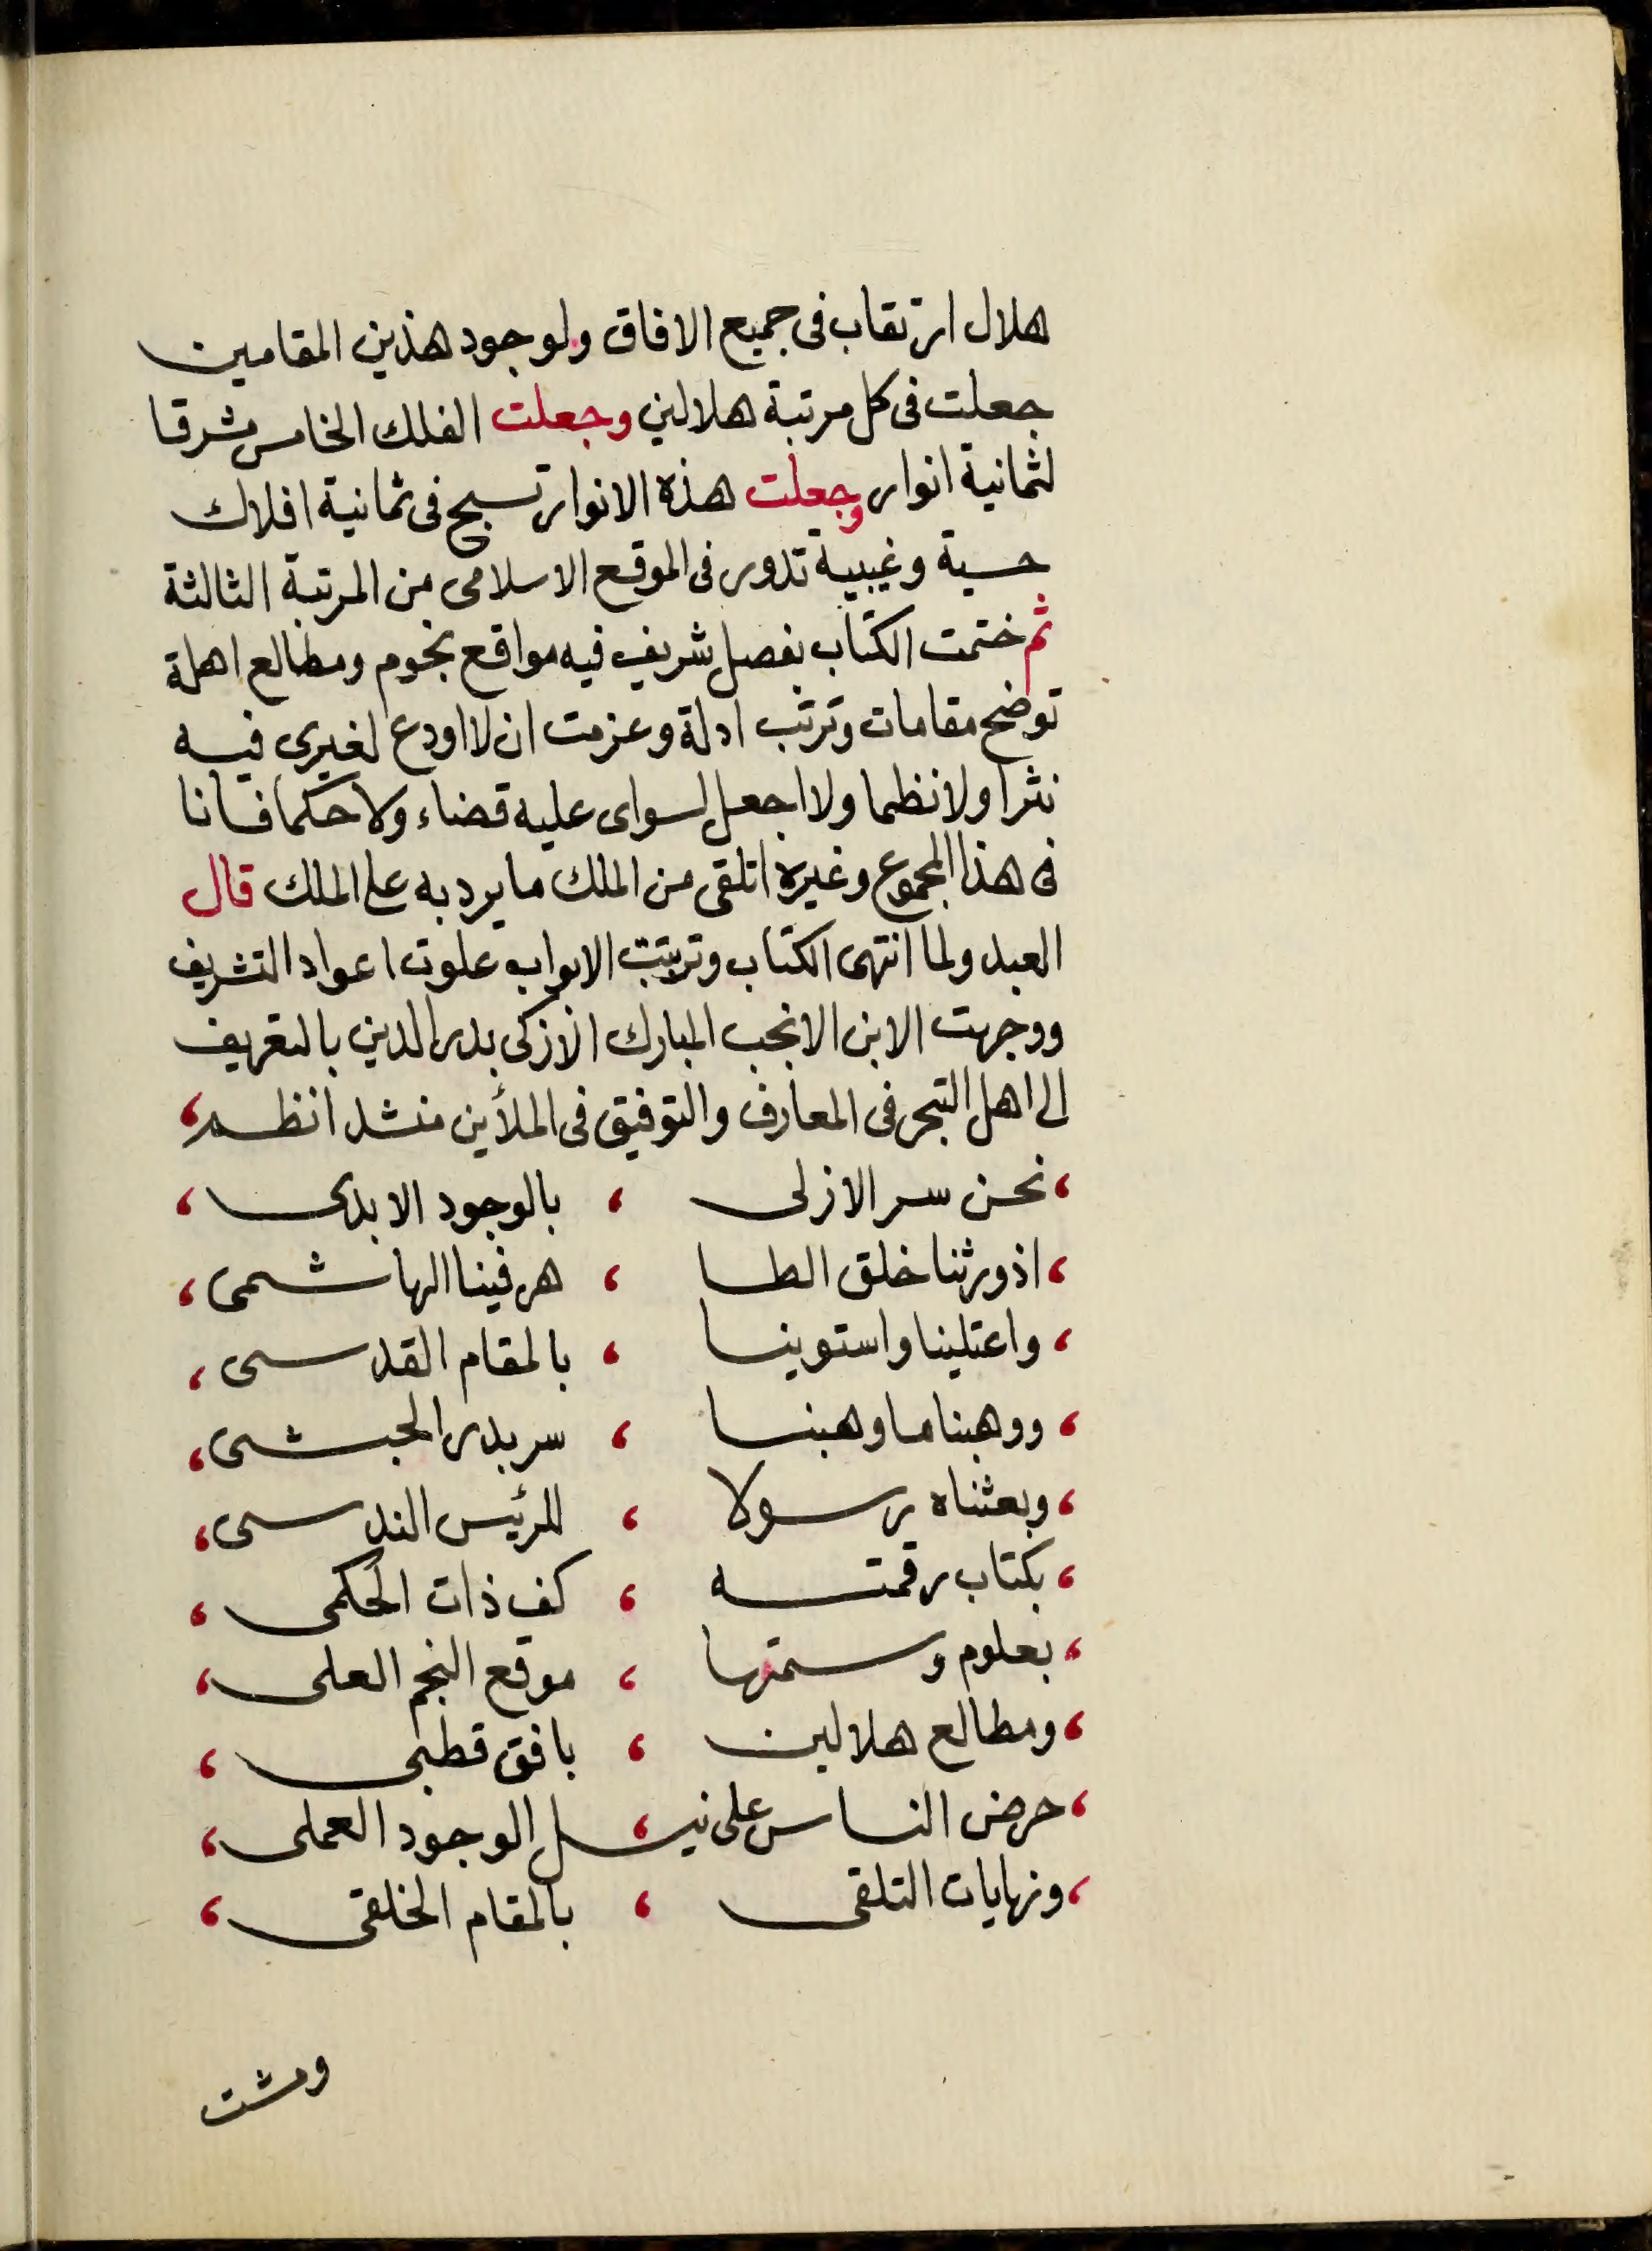 هلال ارتقاب فى جميع الافاق ولوجود هذين المقامين
جعلت فى كل مرتبة هلالين وجعلت الفلك الخامس مشرقا
لثمانية انوار وجعلت هذه الانوار تسبح فى ثمانية افلاك
حسية وغيبية تدور فى الموقع الاسلامى من المرتبة الثالثة
ثم ختمت الكتاب بفصل شريف فيه مواقع نجوم ومطالع اهلة
توضح مقامات وترتب ادلة وعزمت ان لا اودع لغيرى فيه
نثرا ولا نظما ولا اجعل لسواى عليه قضاء ولا حكما فانا
فى هذا المجموع وغيره اتلقى من الملك ما يرد به على الملك قال
العبد ولما انتهى الكتاب وترتبت الابواب علوت اعواد التشريف
ووجهت الابن الانجب المبارك الازكى بدر الدين بالتعريف
الى اهل التبحر فى المعارف والتوفيق فى الملأين منشدا نظم،
، نحن سر الازلى ، بالوجود الابدى ،
، اذ ورثنا خلق الطا ، هر فينا الهاشمى ،
، واعتلينا واستوينا ، بالمقام القدسى ،
، ووهبنا ما وهبنا ، سر بدر الحبشى ،
، وبعثناه رسولا ، للرئيس الندسى ،
، بكتاب رقمته ، كف ذات الحكمى ،
، بعلوم وسمتها ، موقع النجم العلى ،
، ومطالع هلالين ، بافق قطبى ،
، حرض الناس على نيـ ، ـل الوجود العملى ،
، ونهايات التلقى ، بالمقام الخلقى ،
ومشت